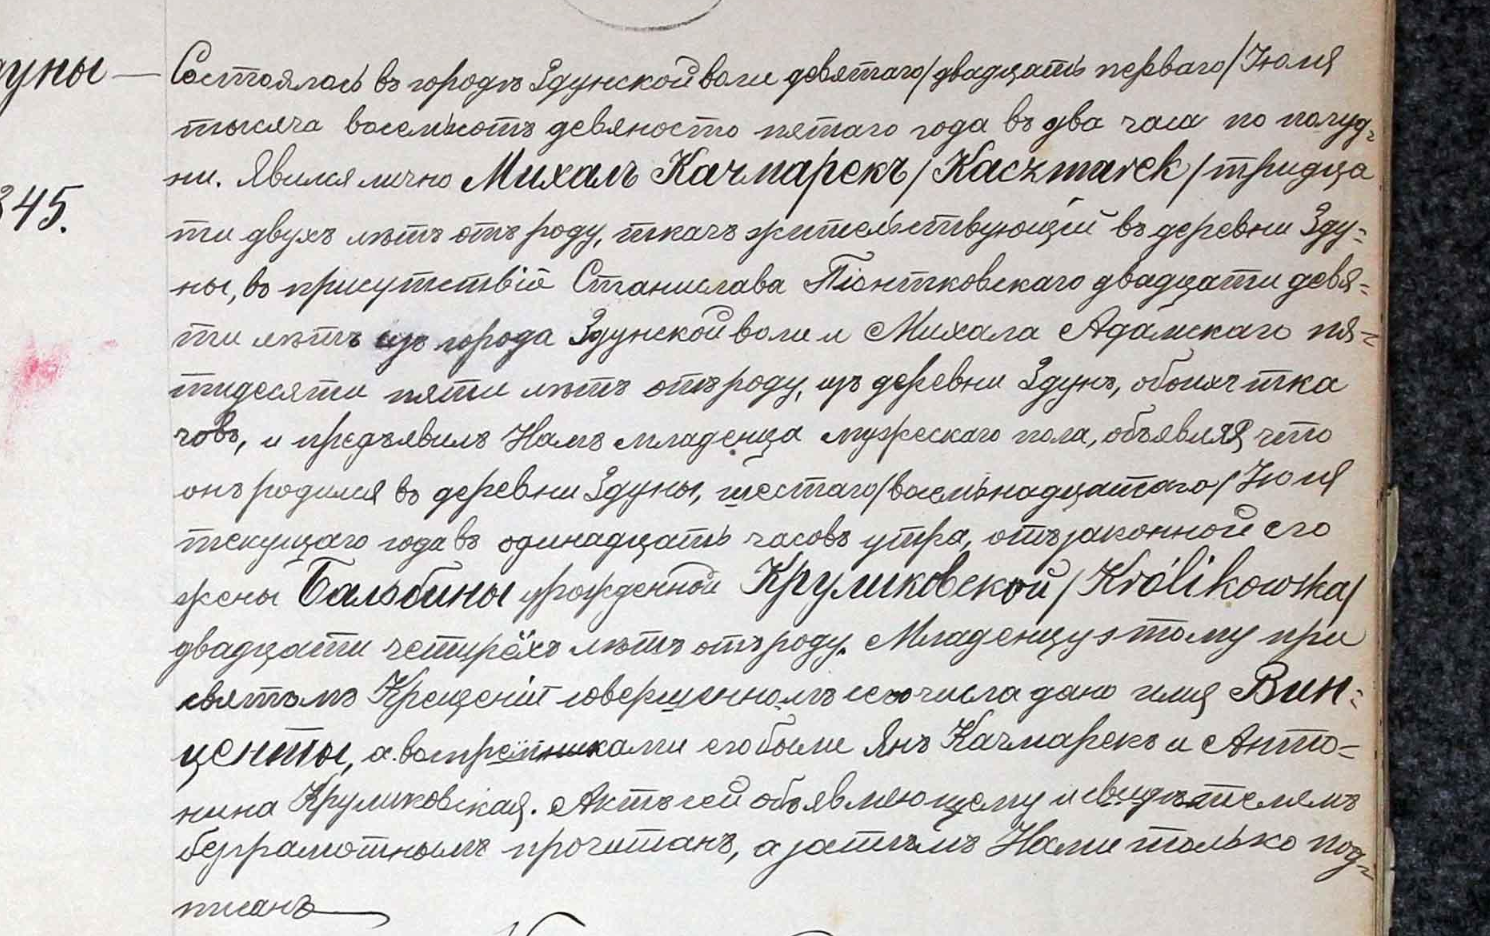 уны — Состоялось въ городѣ Здунской воли девятаго /двадцать перваго/ Іюля
тысяча восемьсотъ девяносто пятаго года въ два часа по полуд-
ни. Явился лично Михалъ Качмарекъ /Kaczmarek/ тридца
345.
ти двухъ лѣтъ отъ роду, ткачъ жительствующій въ деревни Зду-
ны, въ присутствіи Станислава Піонтковскаго двадцати девя-
ти лѣтъ изъ города Здунской воли и Михала Адамскаго пя-
тидесяти пяти лѣтъ отъ роду, изъ деревни Здунъ, обоихъ тка
човъ, и предъявилъ Намъ младенца мужескаго пола, объявляя что
онъ родился въ деревни Здуны, шестаго /восьмьнадцатаго/ Іюля
текущаго года въ одинадцать часовъ утра, отъ законной его
жены Бальбины урожденной Круликовской /Królikowska/
двадцати четырёхъ лѣтъ отъ роду. Младенцу этому при
святомъ Крещеніи совершенномъ сего числа дано имя Вин-
центы, а воспреёмниками его были Янъ Качмарекъ и Анто-
нина Круликовская. Актъ сей объявляющему и свидѣтелямъ
безграмотнымъ прочитанъ, а затѣмъ Нами только под-
писанъ